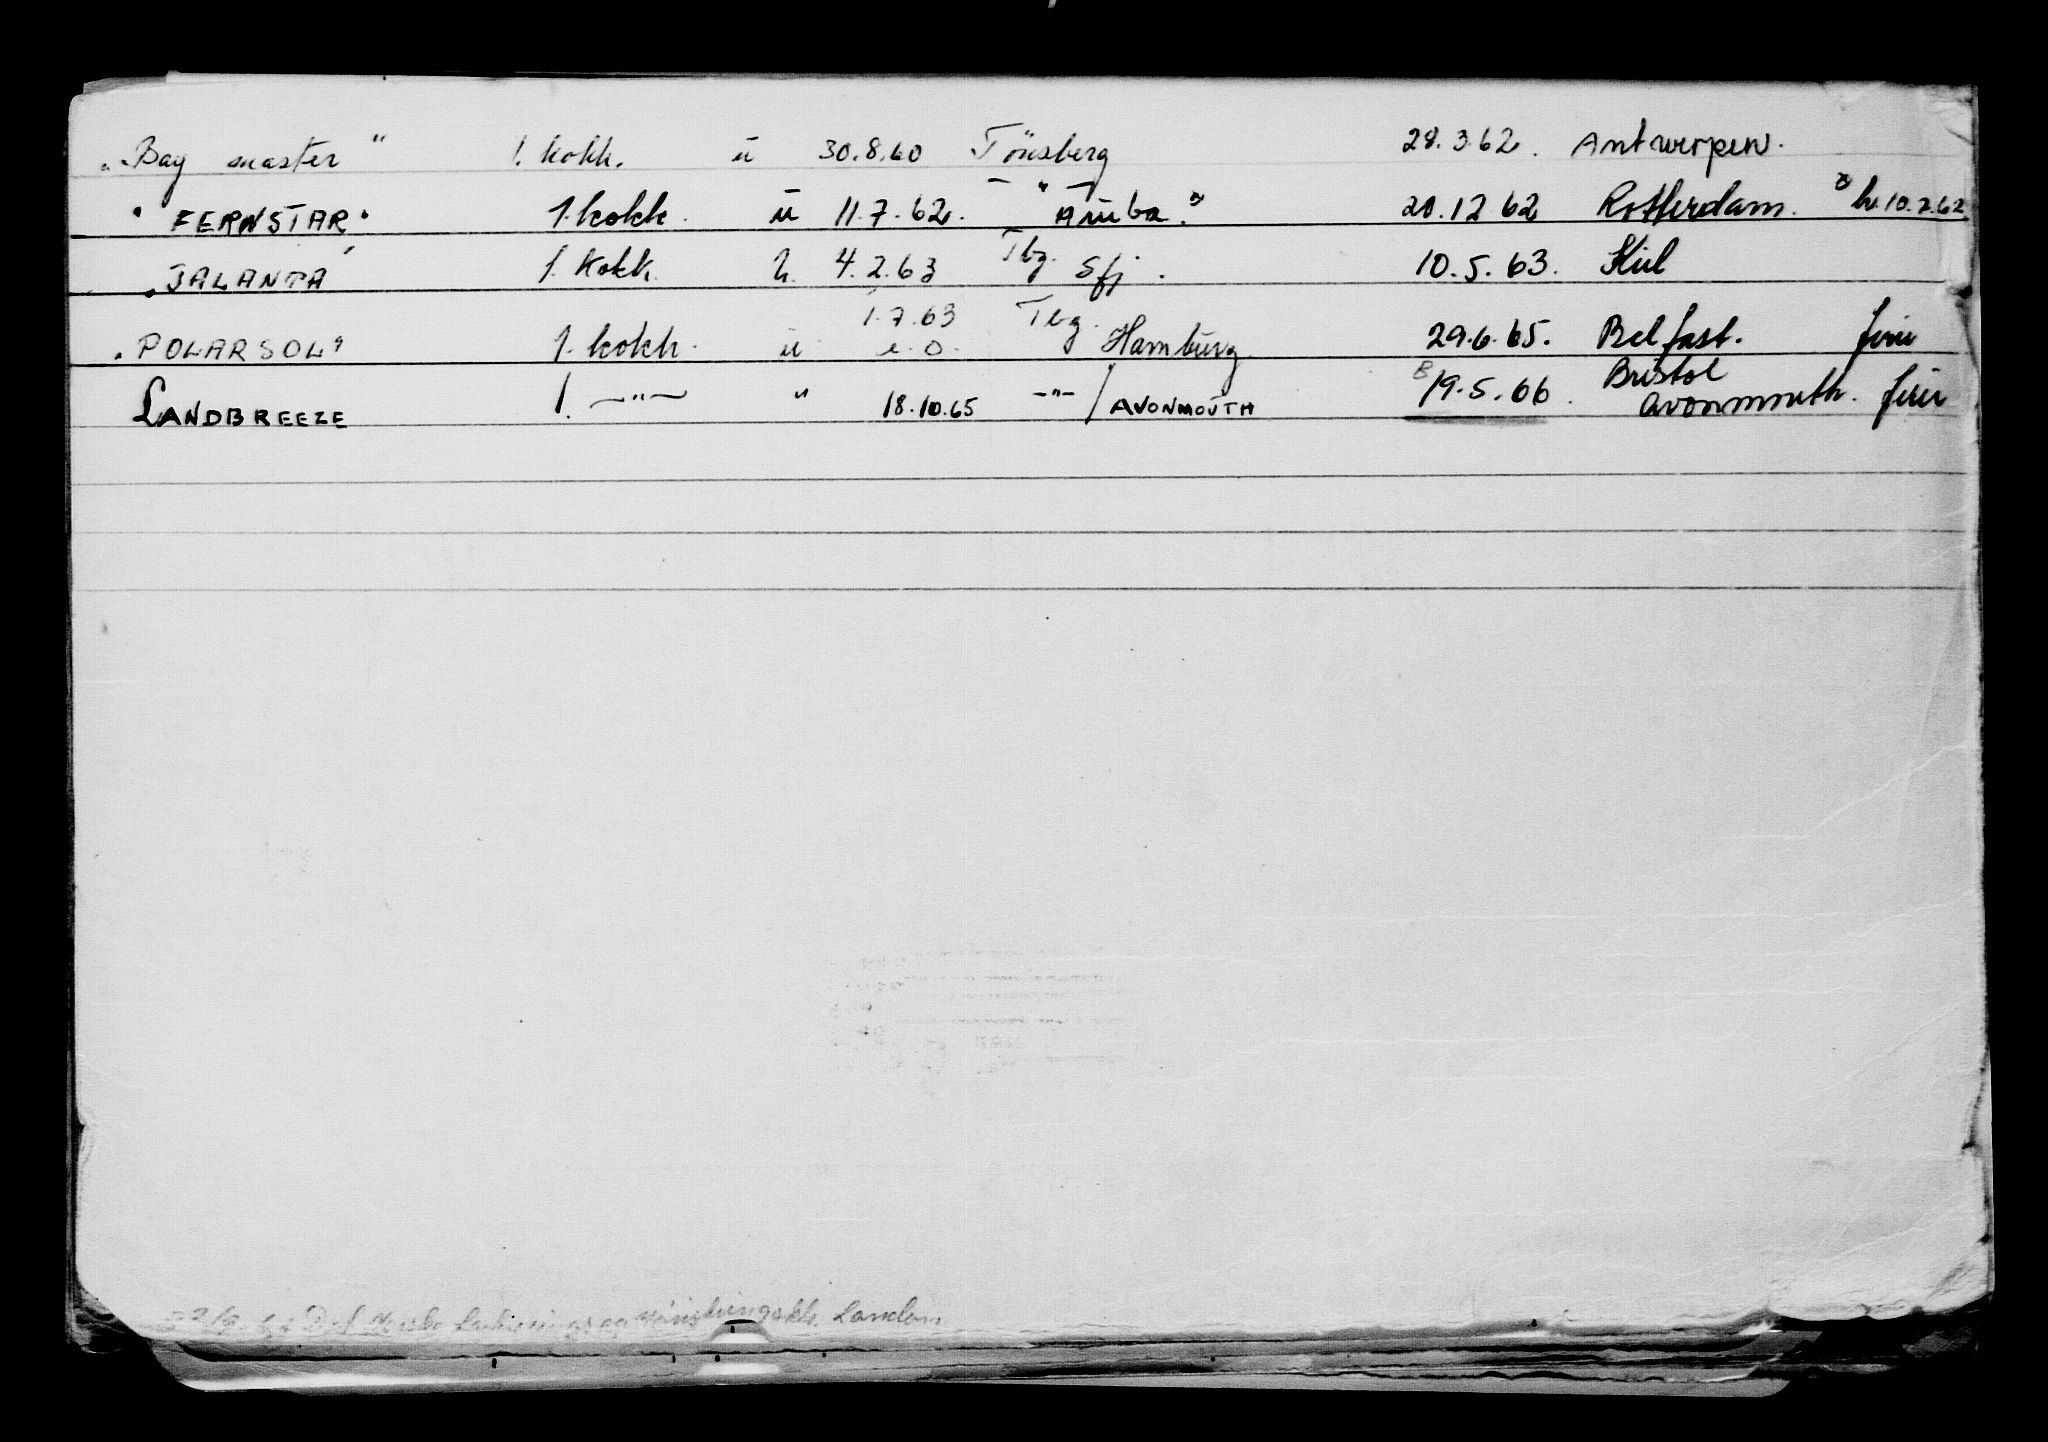 "Bay master" 1. kokk. u 30.8.60 Tönsberg 28.3.62. Antwerpen.
"FERNSTAR" 1. kokk. ū 11.7.62. — " — "Aruba." 20.12 62 Rotterdam. hr. 10.7.62
"JALANTA" 1. kokk. u. 4.2.63 Tbg. Sfj. 10.5.63. Kiel
"POLARSOL" 1. kokk. u 1.7.63 e.o. Tbg. Hamburg. 29.6.65. Belfast. ferie
LANDBREEZE 1. —"— " 18.10.65 —"— / AVONMOUTH B 19.5.66. Bristol Avonmouth. ferie
Det Norske London